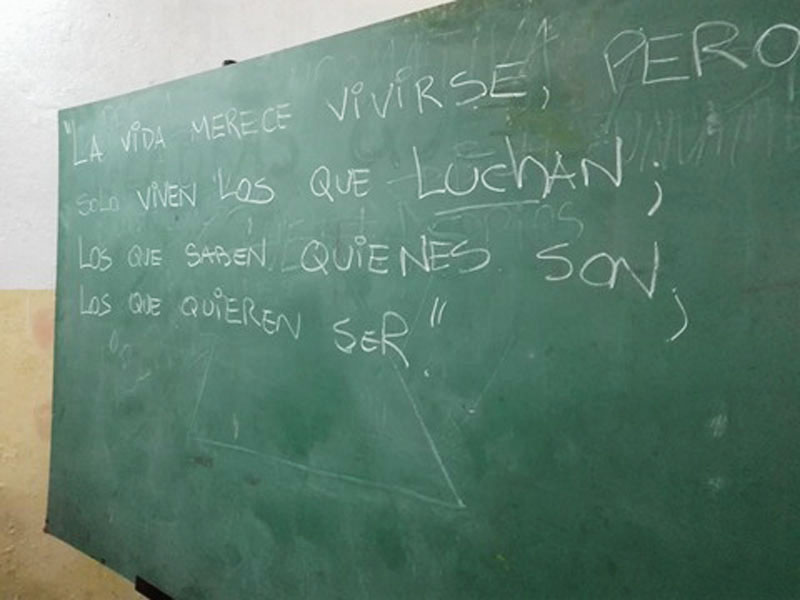 "LA ViDA MERECE ViViRSE, PERO
SOLO ViVEN LOS QUE LUChAN;
LOS QUE SABEN QUiENES SON;
LOS QUE QUiEREN SER."